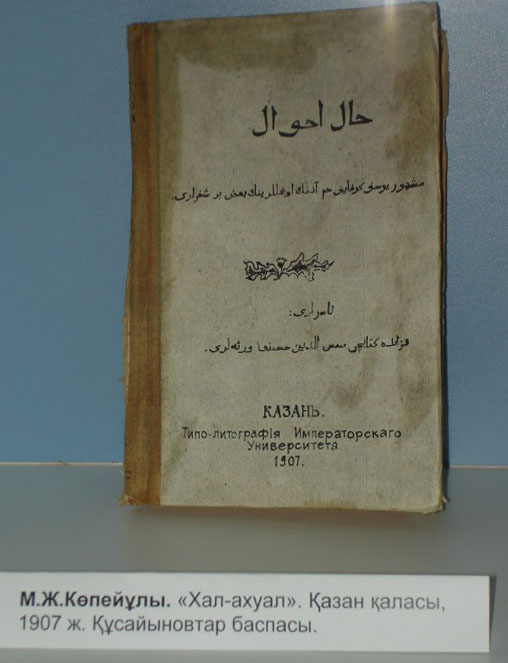 حال احوال
مشهور يوسف كوفايف هم آننك اوغللرينك بعض بر شغرلرى.
ناسرلرى:
قزانده كتابچى شمس الدين حسينوف ورثه‌لرى.
КАЗАНЬ.
Типо-литографія Императорскаго
Университета
1907.
М.Ж.Көпейұлы. «Хал-ахуал». Қазан қаласы,
1907 ж. Құсайыновтар баспасы.